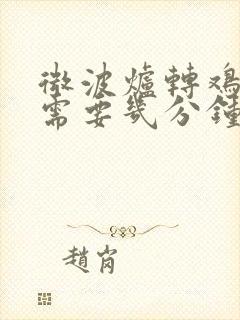 微波爐轉鸡
需要幾分鐘
趙岗